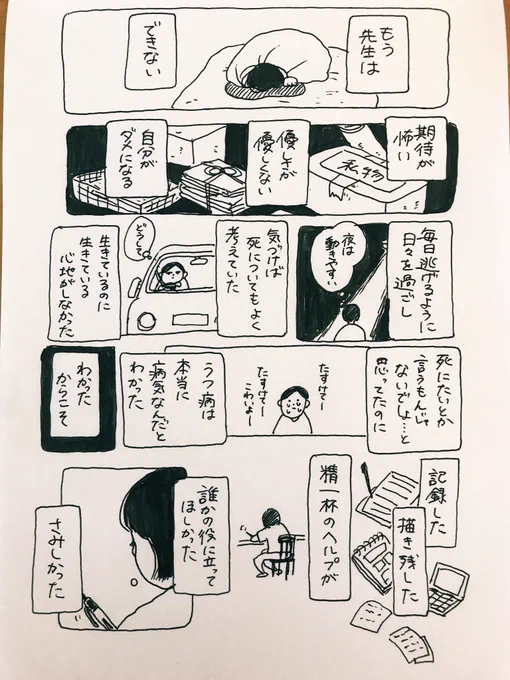 もう
先生は
できない
期待が
怖い
私物
優しさが
優しくない
自分が
ダメになる
毎日逃げるように
日々を過ごし
夜は
動きやすい
気づけば
死についてもよく
考えていた
どうして
生きているのに
生きている
心地がしなかった
死にたいとか
言うもんじゃ
ないでしょ…と
思ってたのに
たすけてー
たすけてー
こわいよー
うつ病は
本当に
病気なんだと
わかった
わかった
からこそ
記録した
描き残した
精一杯のヘルプが
誰かの役に立って
ほしかった
さみしかった